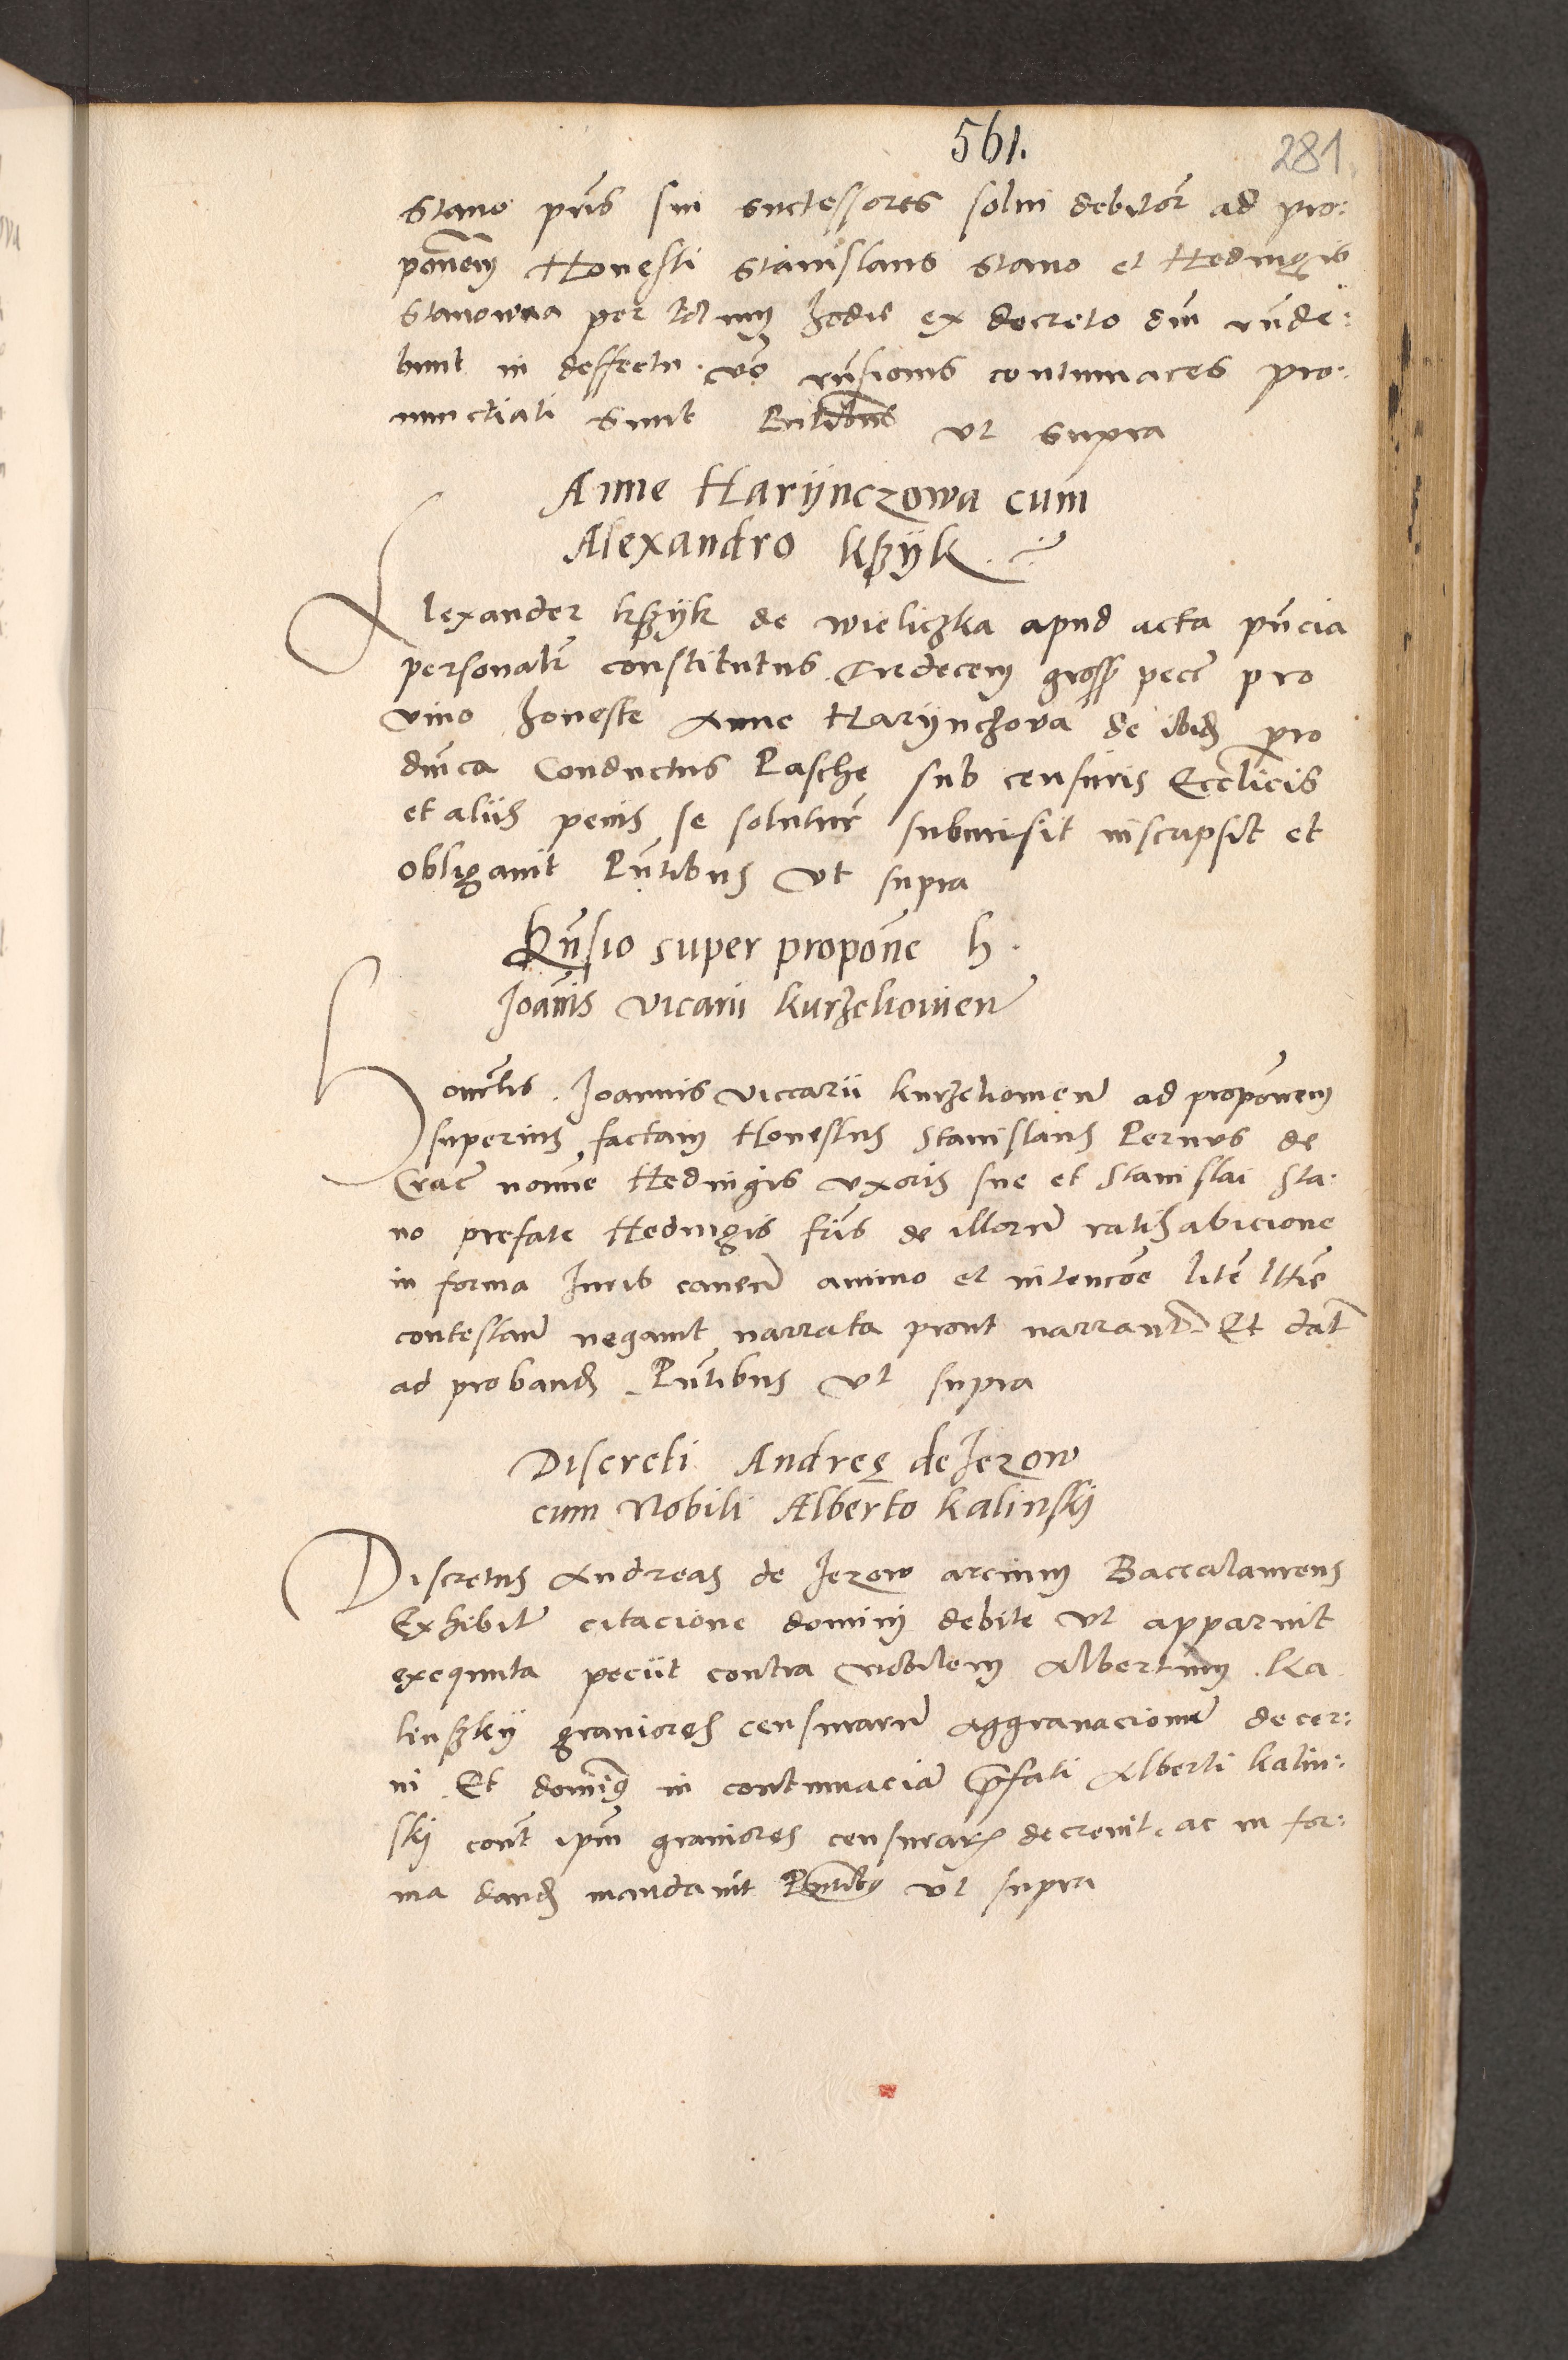 561.
281
Stano pr̃is sui successores solui debitor̃ ad pro:
ponem Honesti Stanislaus Stano et Hedwigis
Stanowna per totum hodie ex decreto dni runde:
bunt in deffectu vo rñsionis contumaces pro:
nunctiati sunt Pñtibus vt supra
Anne Harijnczowa cum
Alexandro kßijk
Alexander kßÿk de wieliczka apud acta pñcia
personalr̃ constitutus tredecem gross pecc̃ pro
vino honeste Anne Harÿnczova de ibid̃ pro
dñica Conductus Pasche sub censuris Eccl̃icis
et alÿs penis se soluturũ submisit inscripsit et
obligauit Pñtibus Vt supra
Rñsio super propone h.
Joãnis vicarii kurzelouien̄
Honor̃lis Joannis viccarii kurzelouien̄ ad proponem
superius factam Honestus Stanislaus Pernus de
Crac̃ nomine Hedwigis vxoris sue et Stanislai Sta:
no prefate Hedwigis fr̃is de illorum ratihabicione
in forma Juris cauen̄ animo et intencõe lite l̃tie
contestan̄ negauit narrata prout narrant̃ Et dat̃
ad proband̃ Pñtibus Vt supra
Discreti Andreę de Jezow
cum Nobili Alberto kalinskj
Discretus Andreas de Jezow arcium Baccalaureus
Exhibita citacione domini debite vt apparuit
exequuta peciit contra nobilem Albertum Ka
linßkÿ grauiores censurarum aggrauacionem decer:
ni Et dominus in contumaciam p̃fati Alberti kalin:
skj cont ipm̃ grauiores censurar̃ decreuit ac in for:
ma dand̃ mandauit Pñtibus vt supra